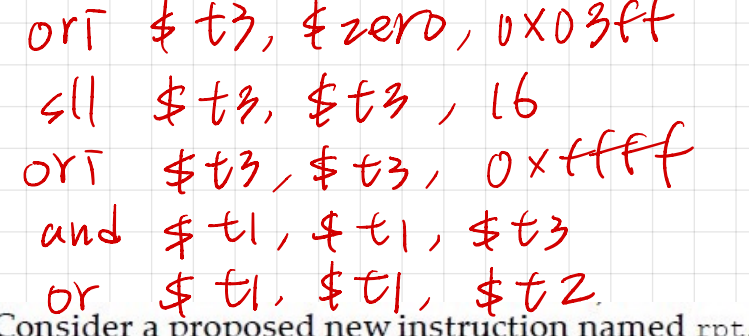 ori $t3, $zero, 0x03ff
sll $t3, $t3, 16
ori $t3, $t3, 0xffff
and $t1, $t1, $t3
or $t1, $t1, $t2
Consider a proposed new instruction named rpt.